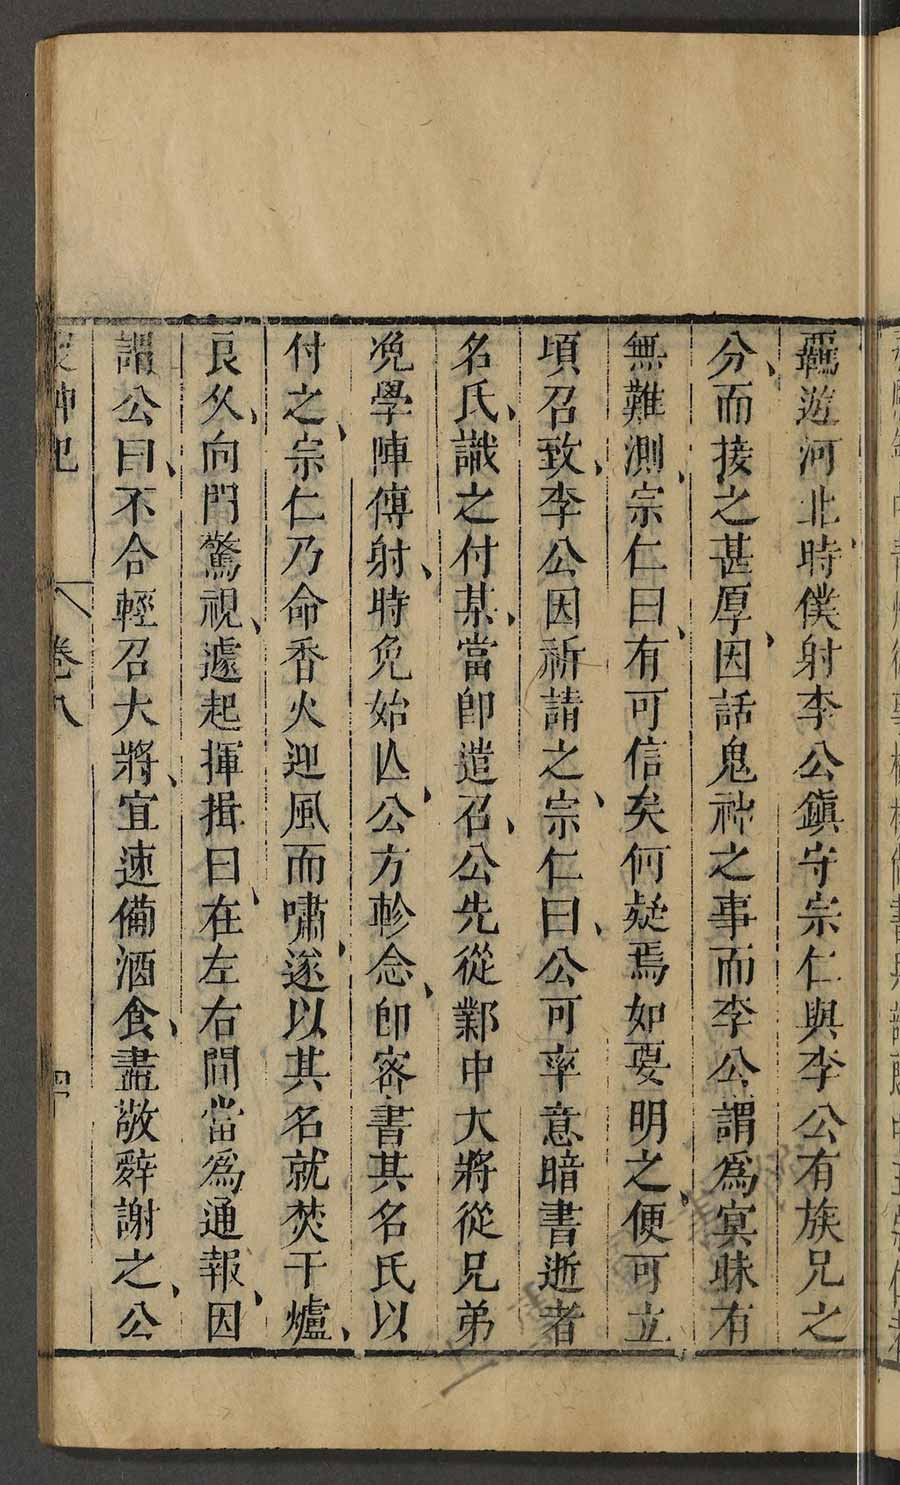 羈遊河北時僕射李公鎮守宗仁與李公有族兄之
分而接之甚厚因話鬼神之事而李公謂爲冥昧有
無難測宗仁曰有可信矣何疑焉如要明之便可立
頃召致李公因祈請之宗仁曰公可率意暗書逝者
名氏識之付某當卽遣召公先從鄴中大將從兄弟
免學陣傅射時免始亾公方軫念卽密書其名氏以
付之宗仁乃命香火迎風而嘯遂以其名就焚于爐
良久向門驚視遽起揮揖曰在左右間當爲通報因
謂公曰不合輕召大將宜速備酒食盡敬辭謝之公
搜神記 卷八 四